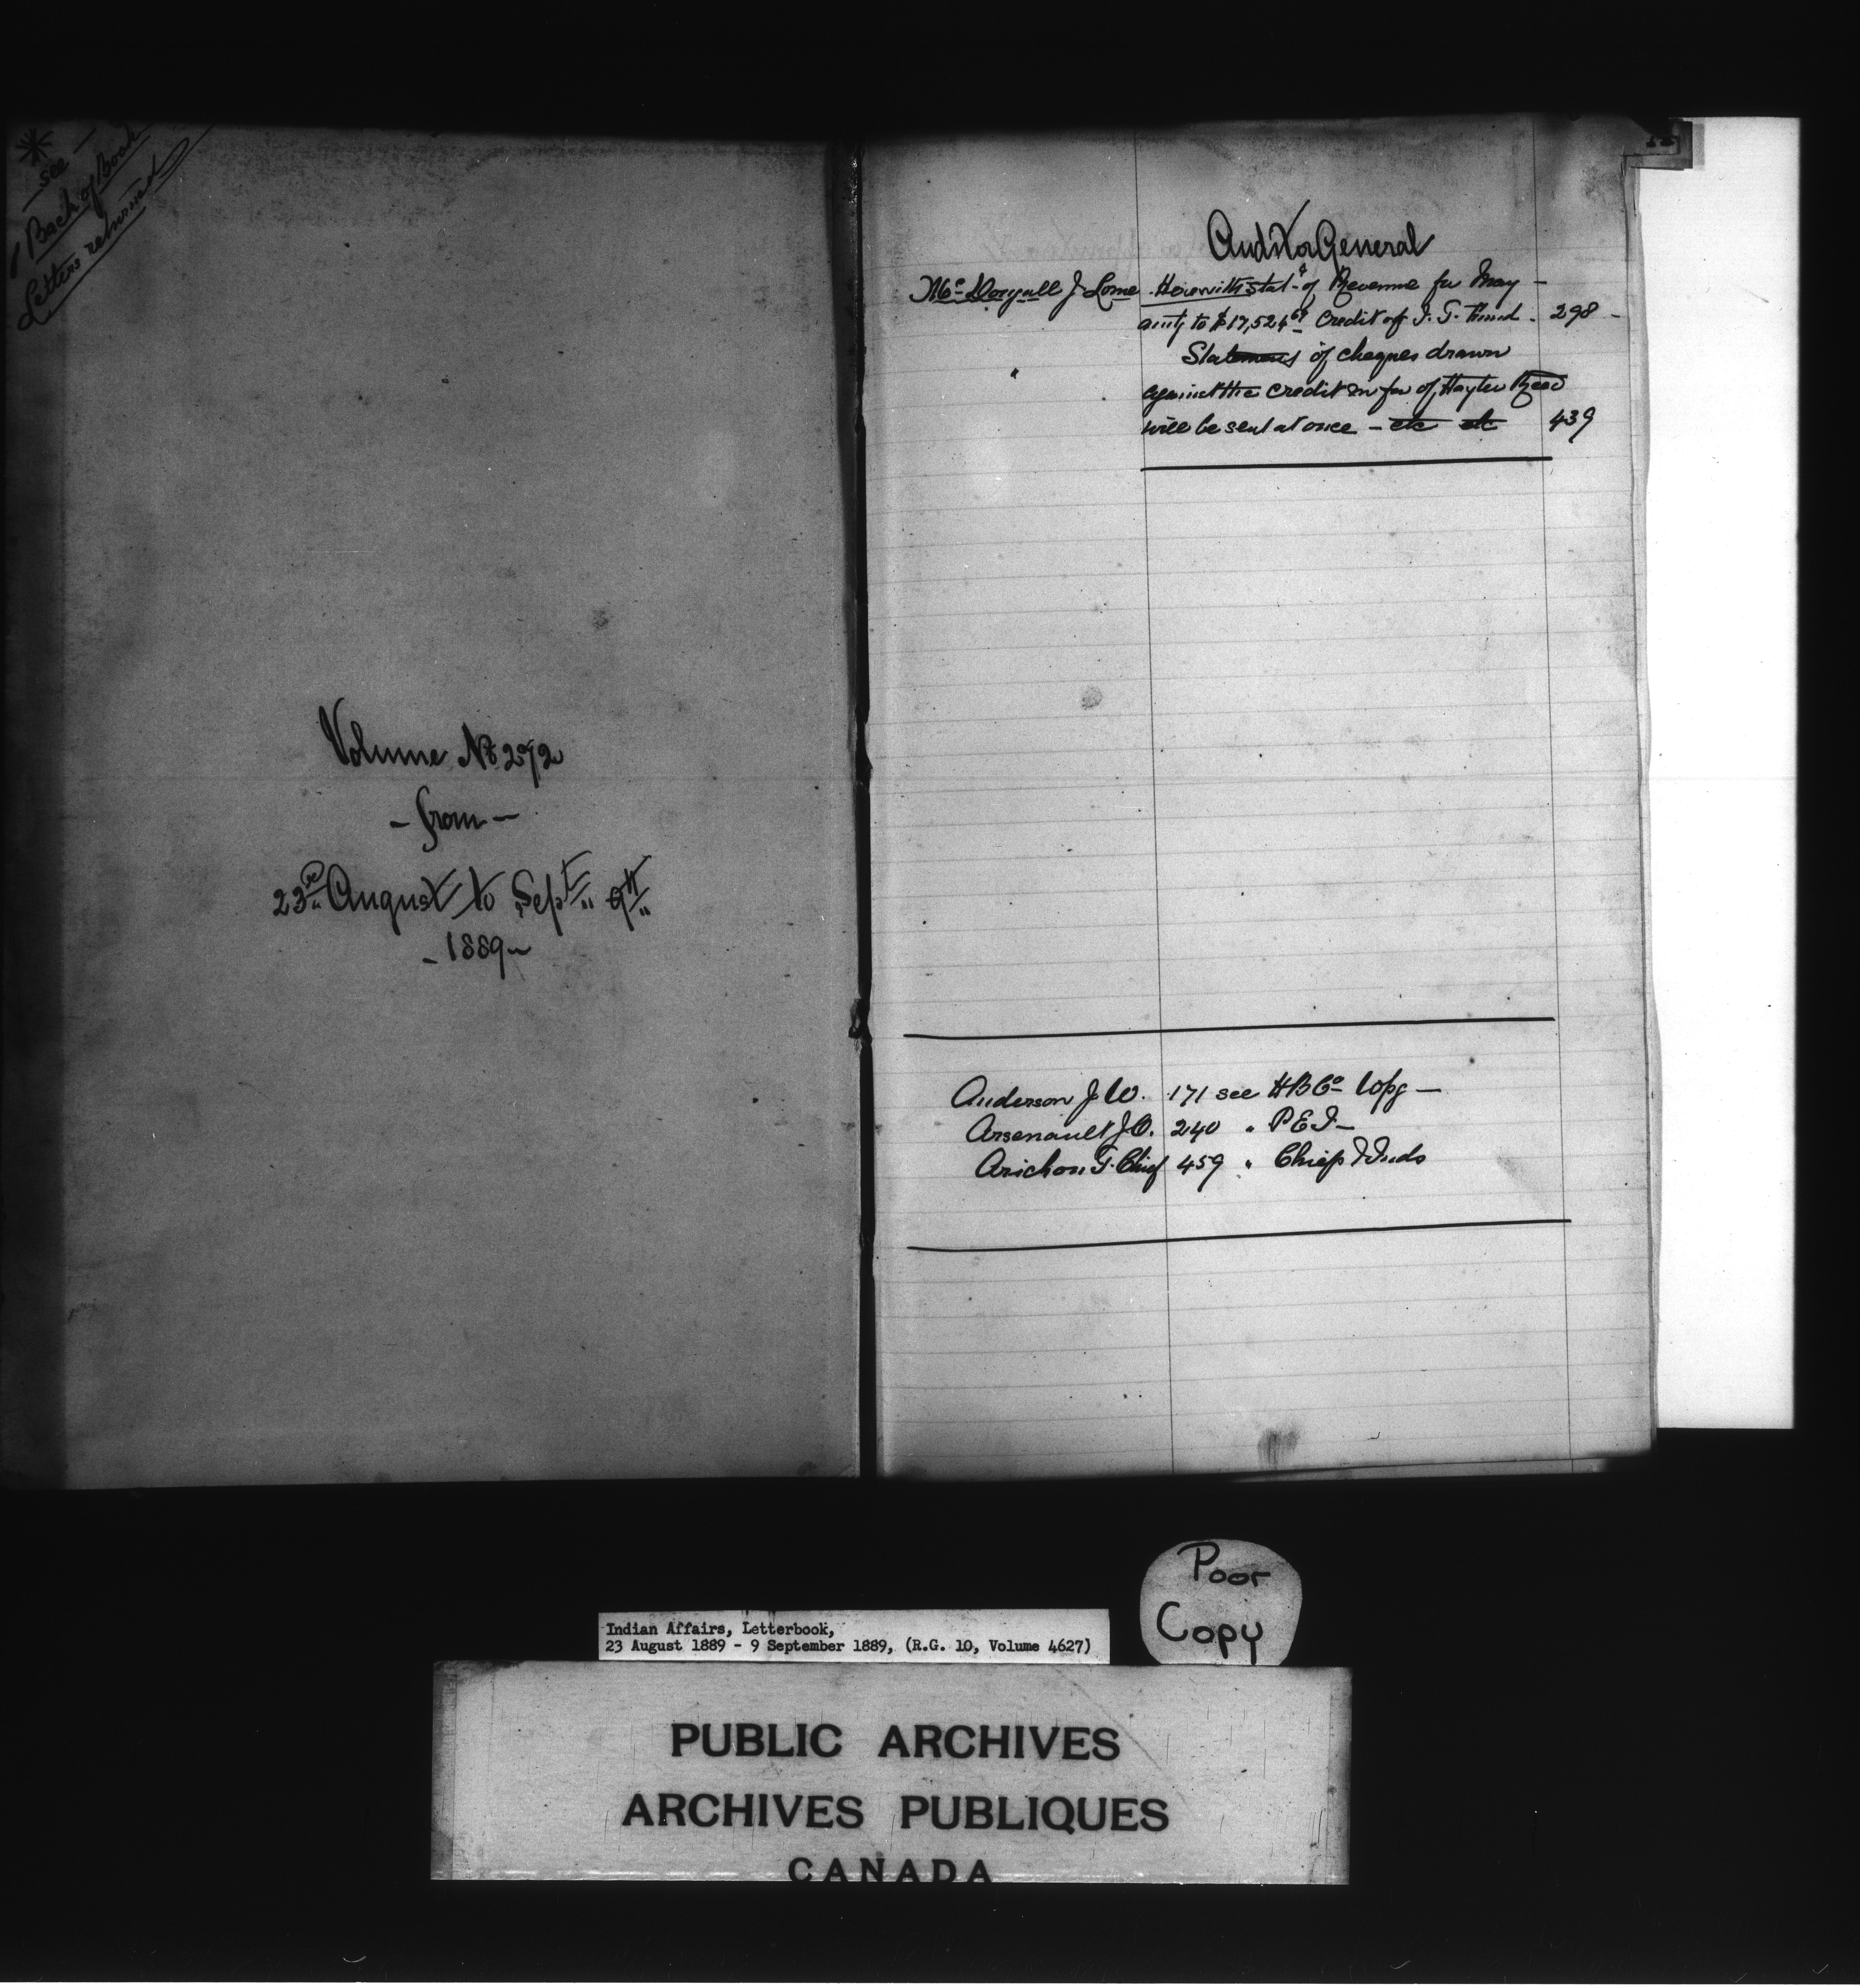 see -
Back of Book
Letters returned
Volume No 272
- from -
23rd August to Sept 9th
- 1889 -
Auditor General
McDougall J Lorne Herewith stat of Revenue for May -
amtg to $17,524 Credit of I. T. Fund - 298 -
" Statement of cheques drawn
against the credit in fav of Hayter Reed
will be sent at once - etc etc 439
Anderson J W. 171 see HB Co Wpg -
Arsenault J O. 240 " P E I -
Arichon T. Chief 459 " Chiefs & Inds
Poor
Copy
Indian Affairs, Letterbook,
23 August 1889 - 9 September 1889, (R.G. 10, Volume 4627)
PUBLIC ARCHIVES
ARCHIVES PUBLIQUES
CANADA